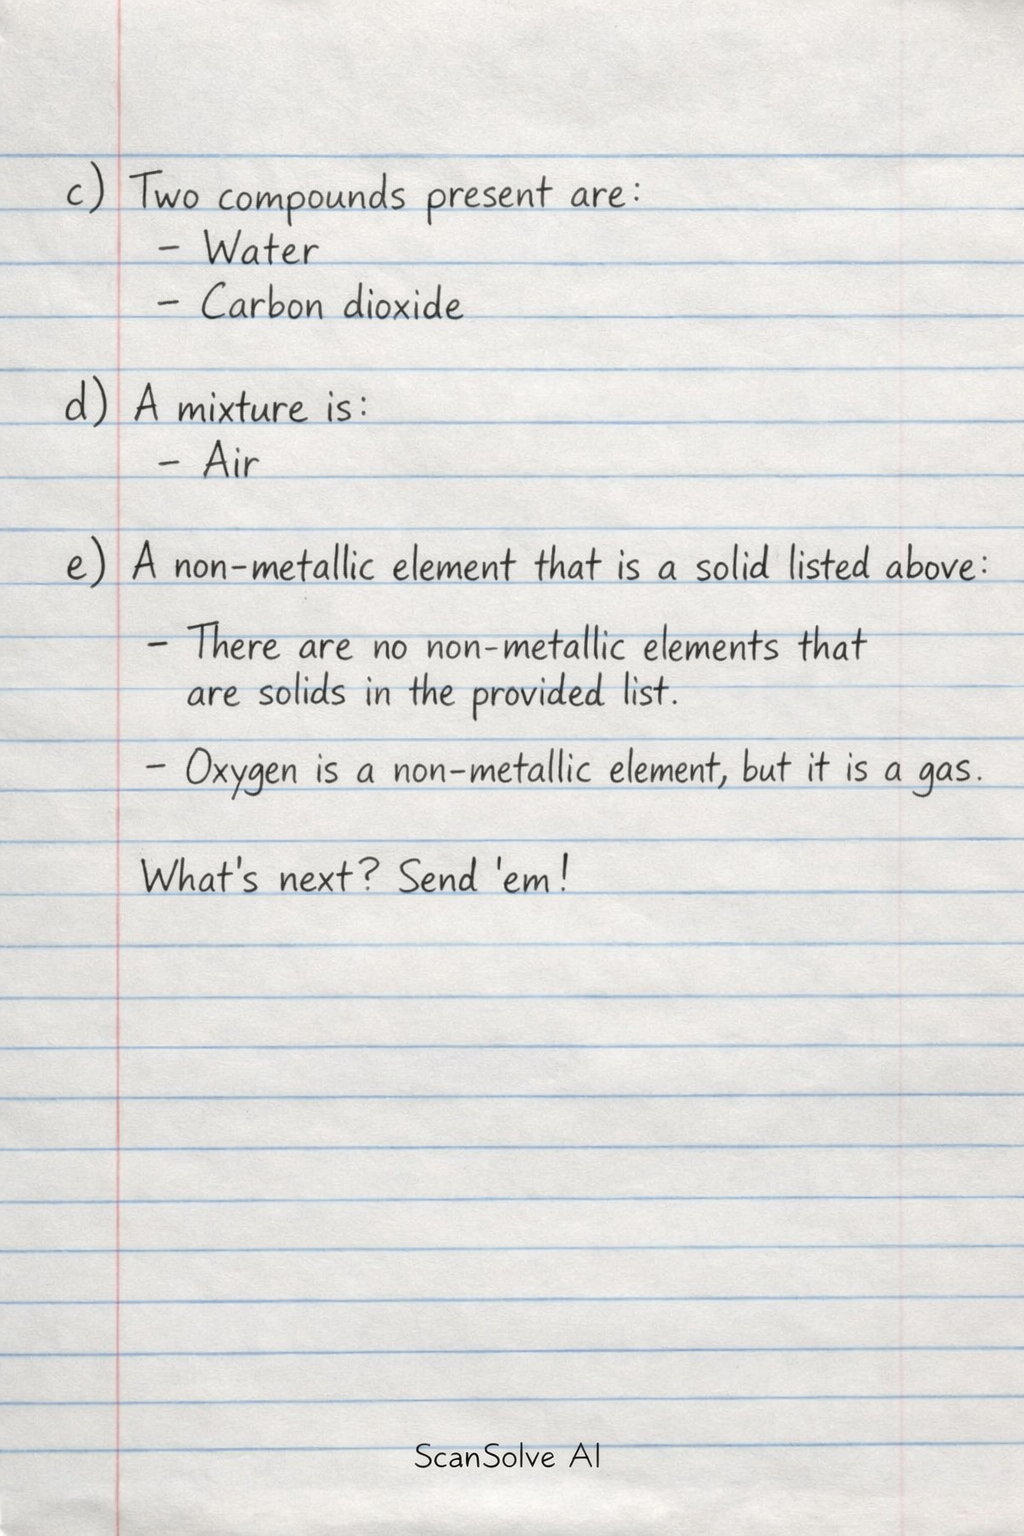 c) Two compounds present are:
- Water
- Carbon dioxide
d) A mixture is:
- Air
e) A non-metallic element that is a solid listed above:
- There are no non-metallic elements that
are solids in the provided list.
- Oxygen is a non-metallic element, but it is a gas.
What's next? Send 'em!
ScanSolve AI